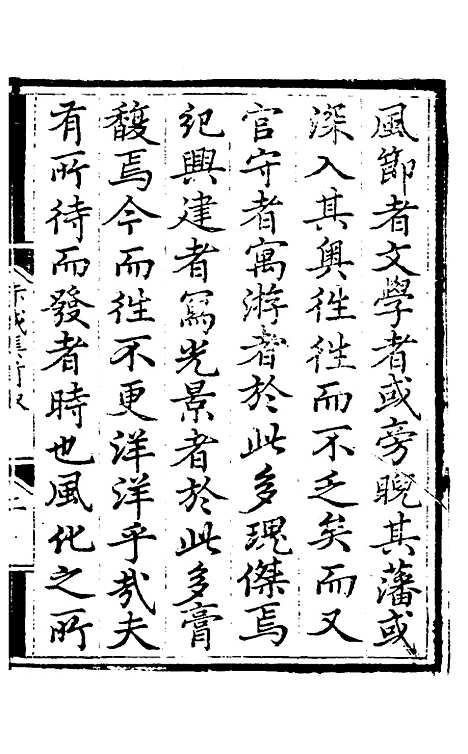 風節者文學者或旁睨其藩或
深入其奥徃徃而不乏矣而又
官守者寓游者於此多瑰傑焉
紀興建者寫光景者於此多膏
馥焉今而徃不更洋洋乎㢤夫
有所待而發者時也風化之所
赤城集